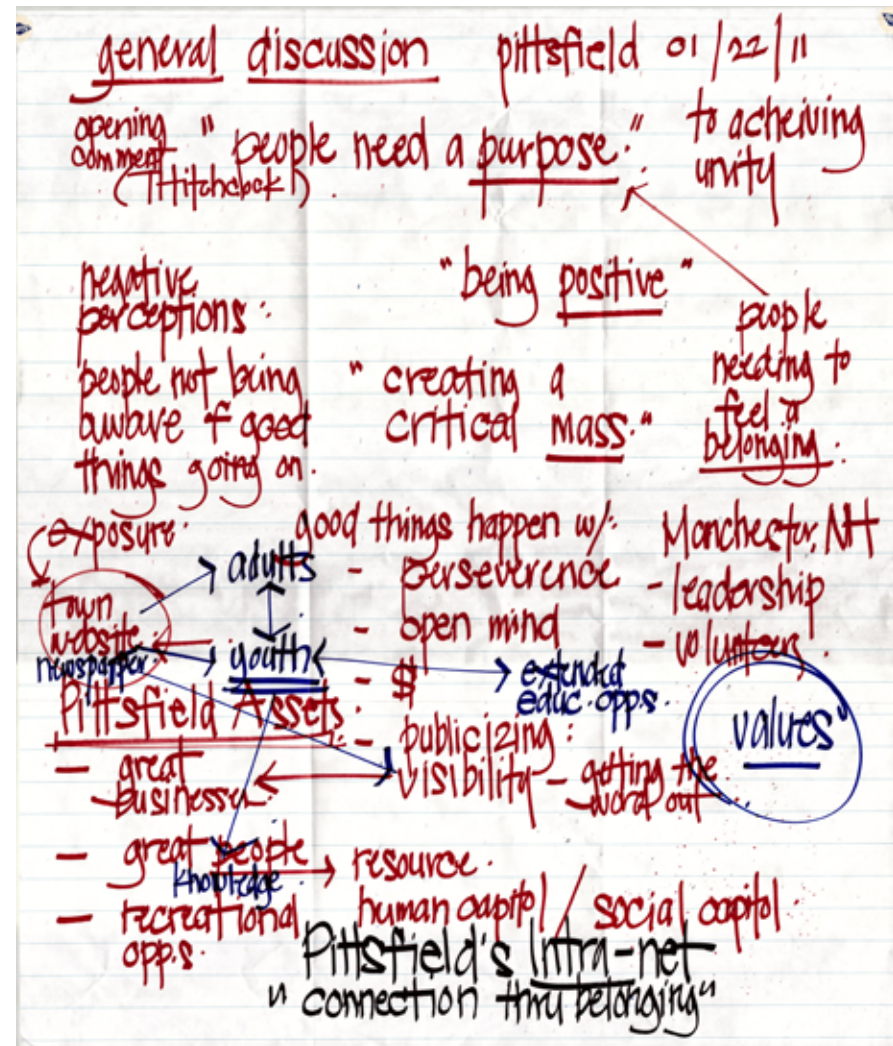 general discussion pittsfield 01/22/11
opening
comment
(THitchcock)
"people need a purpose."
to acheiving
unity
negative
perceptions:
people not being
aware of good
things going on.
"being positive"
"creating a
critical mass."
people
needing to
feel a
belonging.
exposure.
town
website
newspapper.
adults
youth
good things happen w/:
- perseverence
- open mind
- $
- publicizing:
visibility - getting the
word out
extended
educ. opps.
Manchester, NH
- leadership
- volunteers
values"
Pittsfield Assets.
- great
businesses.
- great people
knowledge.
- recreational
opps.
resource.
human capitol / social capitol.
Pittsfield's Intra-net
"connection thru belonging"